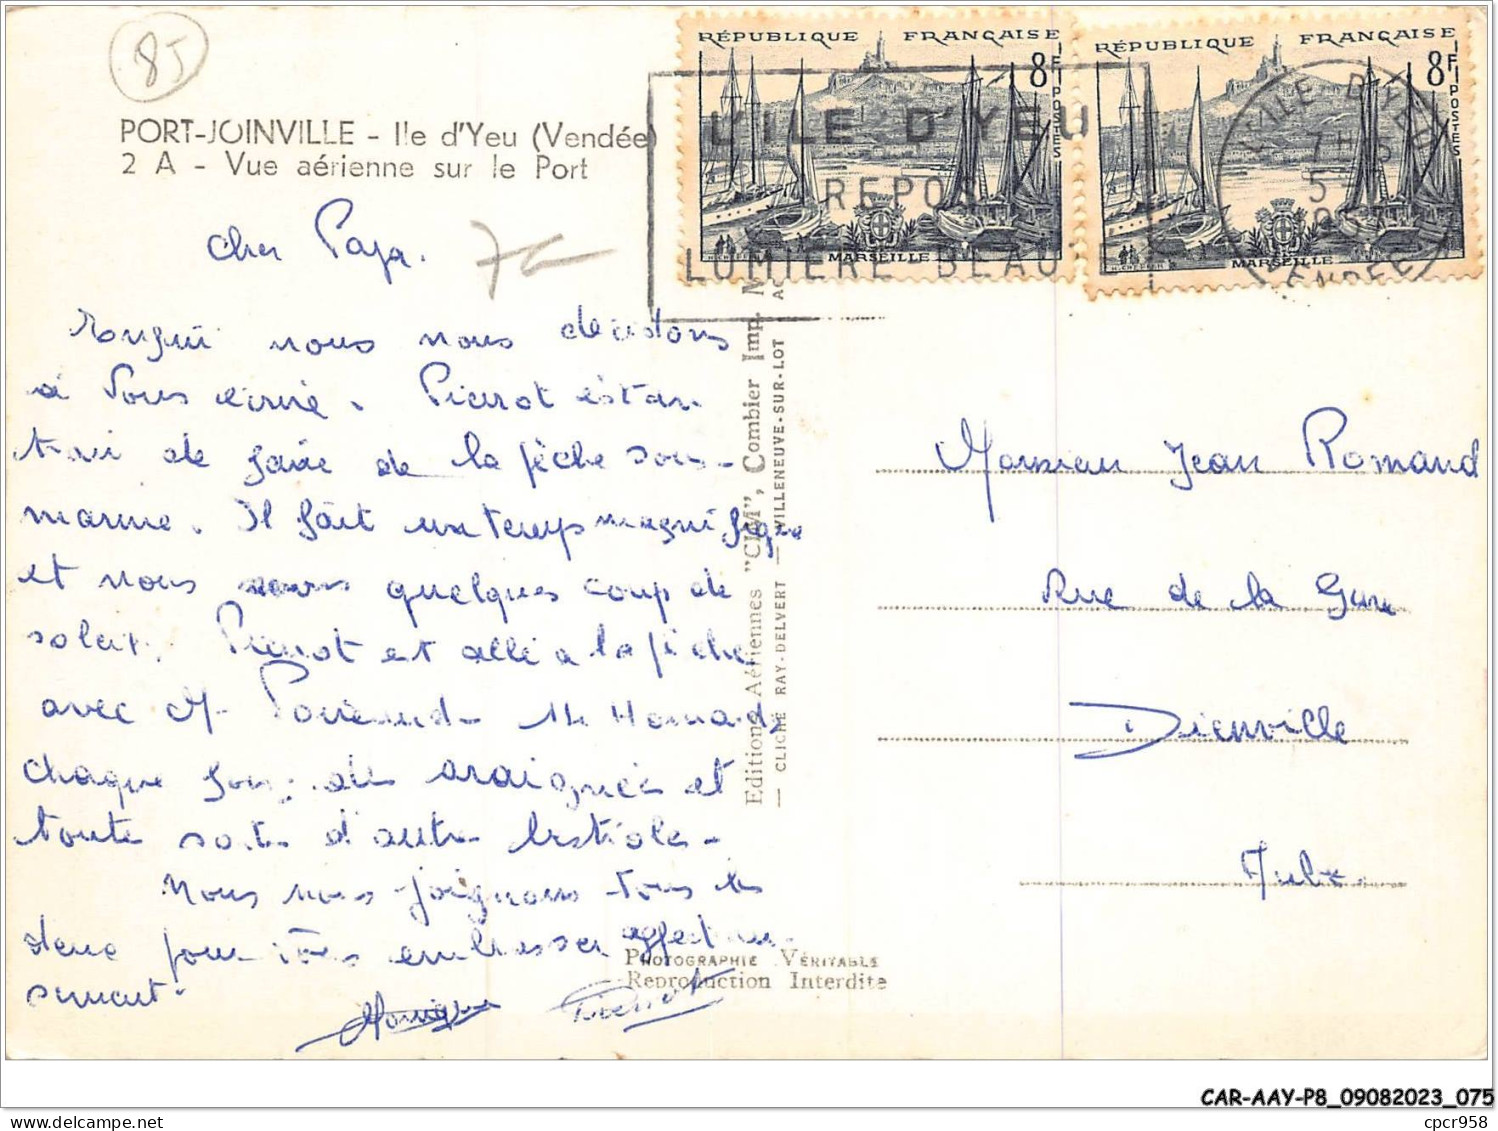 85
PORT-JOINVILLE - Ile d'Yeu (Vendée)
2 A - Vue aérienne sur le Port
RÉPUBLIQUE FRANÇAISE
8F
POSTES
MARSEILLE
RÉPUBLIQUE FRANÇAISE
8F
POSTES
MARSEILLE
L'ILE D'YEU
REPOS
LUMIERE BEAUTE
L'ILE D'YEU
VENDEE
Cher Papa.
nous nous décidons
à vous écrire. Pierrot était
de faire de la pêche sous-
marine. Il fait un temps magnifique
et nous avons quelques coup de
soleil. Pierrot est allé a la pêche
avec Mr
chaque jour des araignées et
toute sorte d'autre bestioles.
Nous nous joignons tous les
deux pour vous embrasser affectueu-
sement.
Monique Pierrot
Editions Aériennes "CIM", Combier Imp.
— CLICHÉ RAY-DELVERT — VILLENEUVE-SUR-LOT
PHOTOGRAPHIE VÉRITABLE
Reproduction Interdite
Monsieur Jean Romand
Rue de la Gare
Dienville
Aube.
CAR-AAY-P8_09082023_075
cpcr958